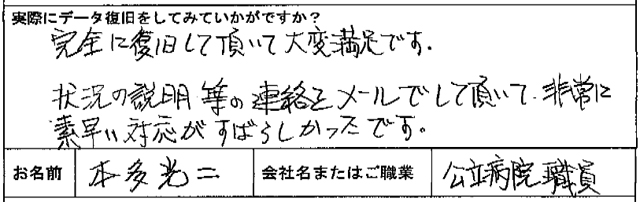 実際にデータ復旧をしてみていかがですか？
完全に復旧して頂いて大変満足です.
状況の説明等の連絡をメールでして頂いて、非常に
素早い対応がすばらしかったです。
お名前 本多光二 会社名またはご職業 公立病院職員